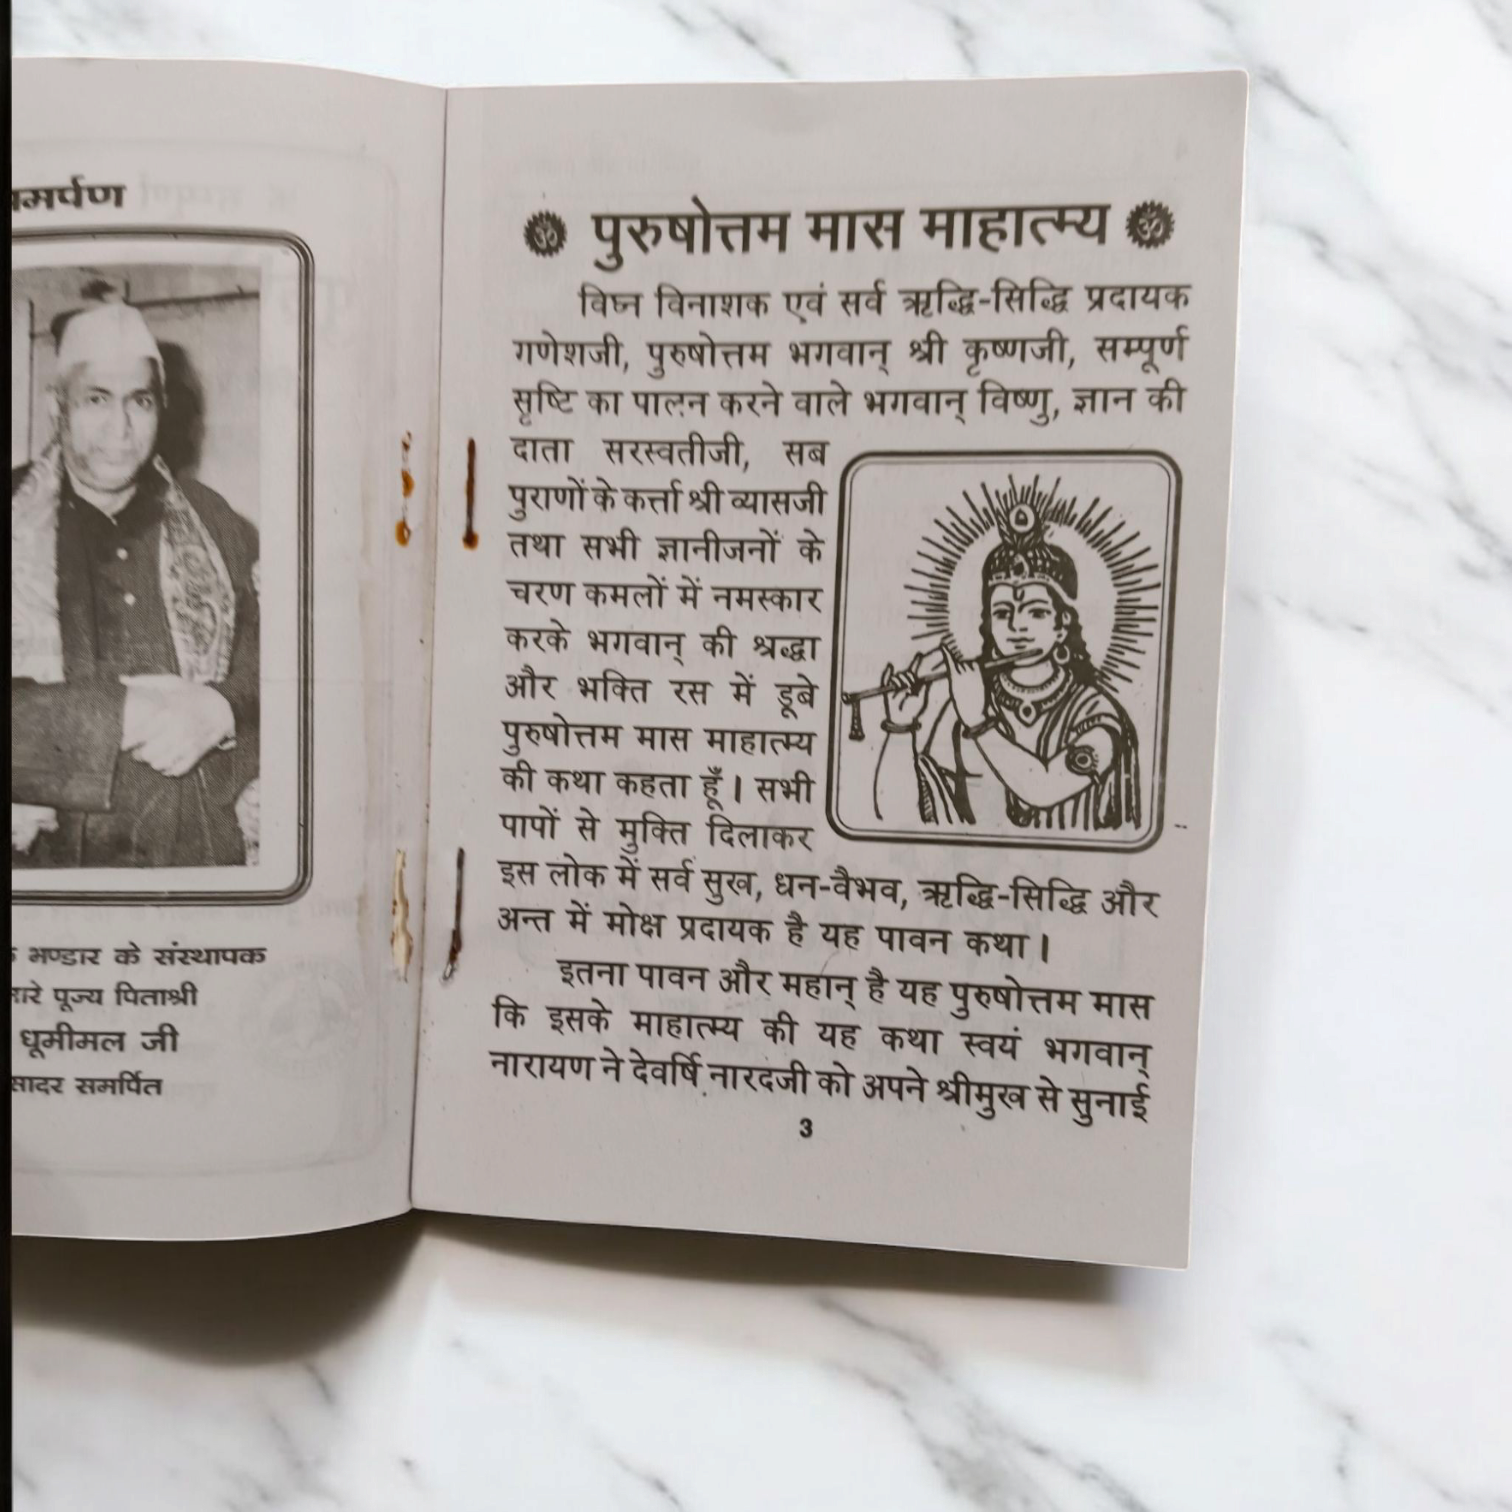 भण्डार के संस्थापक
पूज्य पिताश्री
धूमीमल जी
सादर समर्पित
पुरुषोत्तम मास माहात्म्य
विघ्न विनाशक एवं सर्व ऋद्धि-सिद्धि प्रदायक
गणेशजी, पुरुषोत्तम भगवान् श्री कृष्णजी, सम्पूर्ण
सृष्टि का पालन करने वाले भगवान् विष्णु, ज्ञान की
दाता सरस्वतीजी, सब
पुराणों के कर्त्ता श्री व्यासजी
तथा सभी ज्ञानीजनों के
चरण कमलों में नमस्कार
करके भगवान् की श्रद्धा
और भक्ति रस में डूबे
पुरुषोत्तम मास माहात्म्य
की कथा कहता हूँ। सभी
पापों से मुक्ति दिलाकर
इस लोक में सर्व सुख, धन-वैभव, ऋद्धि-सिद्धि और
अन्त में मोक्ष प्रदायक है यह पावन कथा।
इतना पावन और महान् है यह पुरुषोत्तम मास
कि इसके माहात्म्य की यह कथा स्वयं भगवान्
नारायण ने देवर्षि नारदजी को अपने श्रीमुख से सुनाई
3